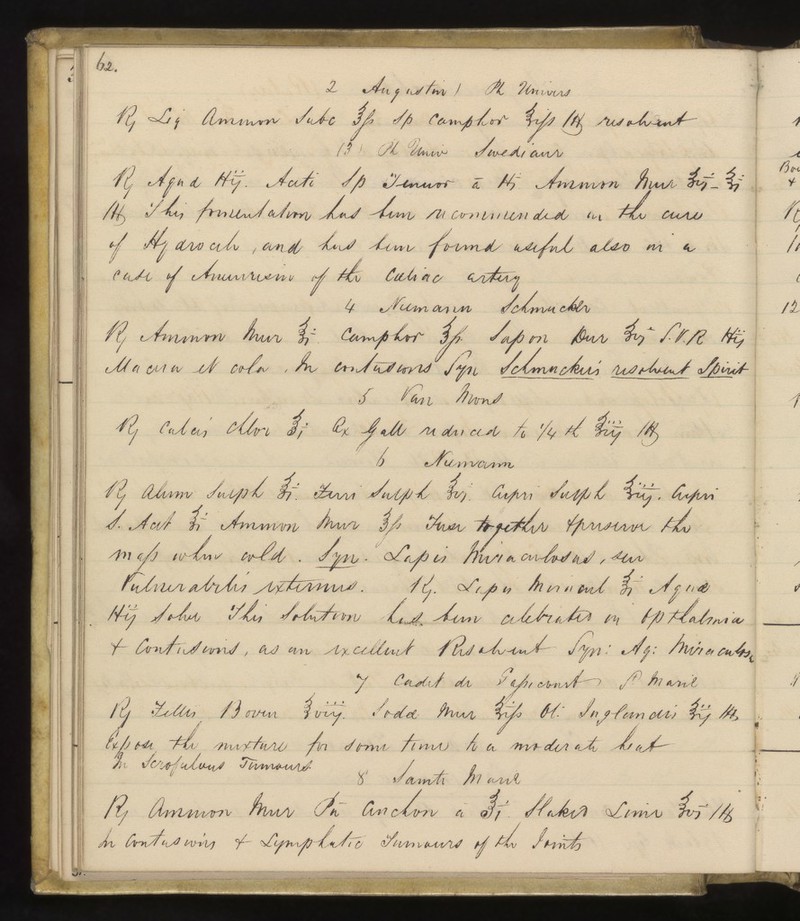 62.
2 Augustin) Ph Univers
℞ Liq Ammon Subc ℥ß Sp Camphor ℥iß ℳ resolvent
(3) Ph Univ Swediaur
℞ Aqua ℔ij. Aceti Sp Tenuor ā ℔j Ammon Mur
ℳ This fomentation has been recommended in the cure
of Hydrocele, and has been found useful also in a
case of Aneurism of the Cœliac artery
4 Niemann Schmucker
℞ Ammon Mur ℥j Camphor ℥ß Sapon Dur S.V.R ℔ij
Macera et cola. In contusions Syn Schmucker's resolvent Spirit
5 Van Mons
℞ Calcis Chlor Ox Gall reduced to 1/4 th ℥iij ℳ
6 Niemann
℞ Alum Sulph Ferri Sulph Cupri Sulph ℥iij. Cupri
S. Acet Ammon Mur ℥ß Fuse together & preserve the
mass when cold. Syn. Lapis Miraculosus, seu
Vulnerabilis externus. ℞. Lapis Miracul Aquæ
℔ij Solve This Solution has been celebrated in Opthalmia
& Contusions, as an excellent Resolvent Syn: Aq: Miraculosa
7 Cadet de Gassicourt S Marie
℞ Fellis Boven Sodæ Mur Ol: Juglandis ℥ij ℳ
Expose the mixture for some time to a moderate heat
In Scrofulous Tumours
8 Sainte Marie
℞ Ammon Mur ā ℥j Slaked Lime ℳ
In Contusions & Lymphatic Tumours of the Joints
12